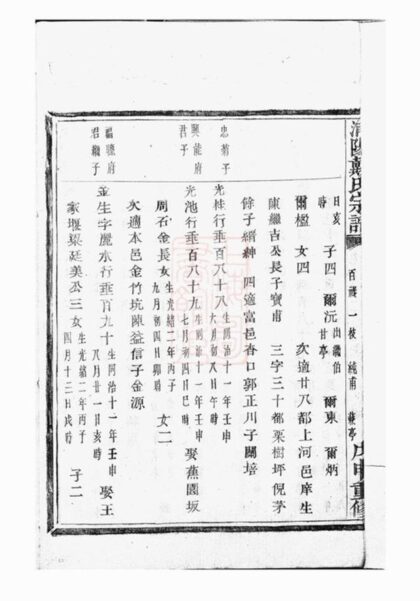 清陽戴氏宗譜
百福一校 戊申重修
日亥時 子四 爾沅 出繼伯甘亭 爾東 爾炳
爾楹 女四 次適廿八都上河邑庠生
陳繼吉公長子寶甫 三字三十都栗樹坪倪茅
餘子縉紳 四適富邑杏口郭正川子關培
忠菊子
光桂行垂百八十八 生同治十一年壬申六月初八日午時
興龍府君子
光池行垂百八十九 生同治十一年壬申七月初四日巳時 娶蕉園坂
周石金長女 生光緒二年丙子九月初四日卯時 女二
次適本邑金竹坑陳益信子金源
福聰府君嗣子
並生字麗水行垂百九十 生同治十一年壬申八月廿一日亥時 娶王
家堰梁廷美公三女 生光緒二年丙子四月十三日戌時 子二